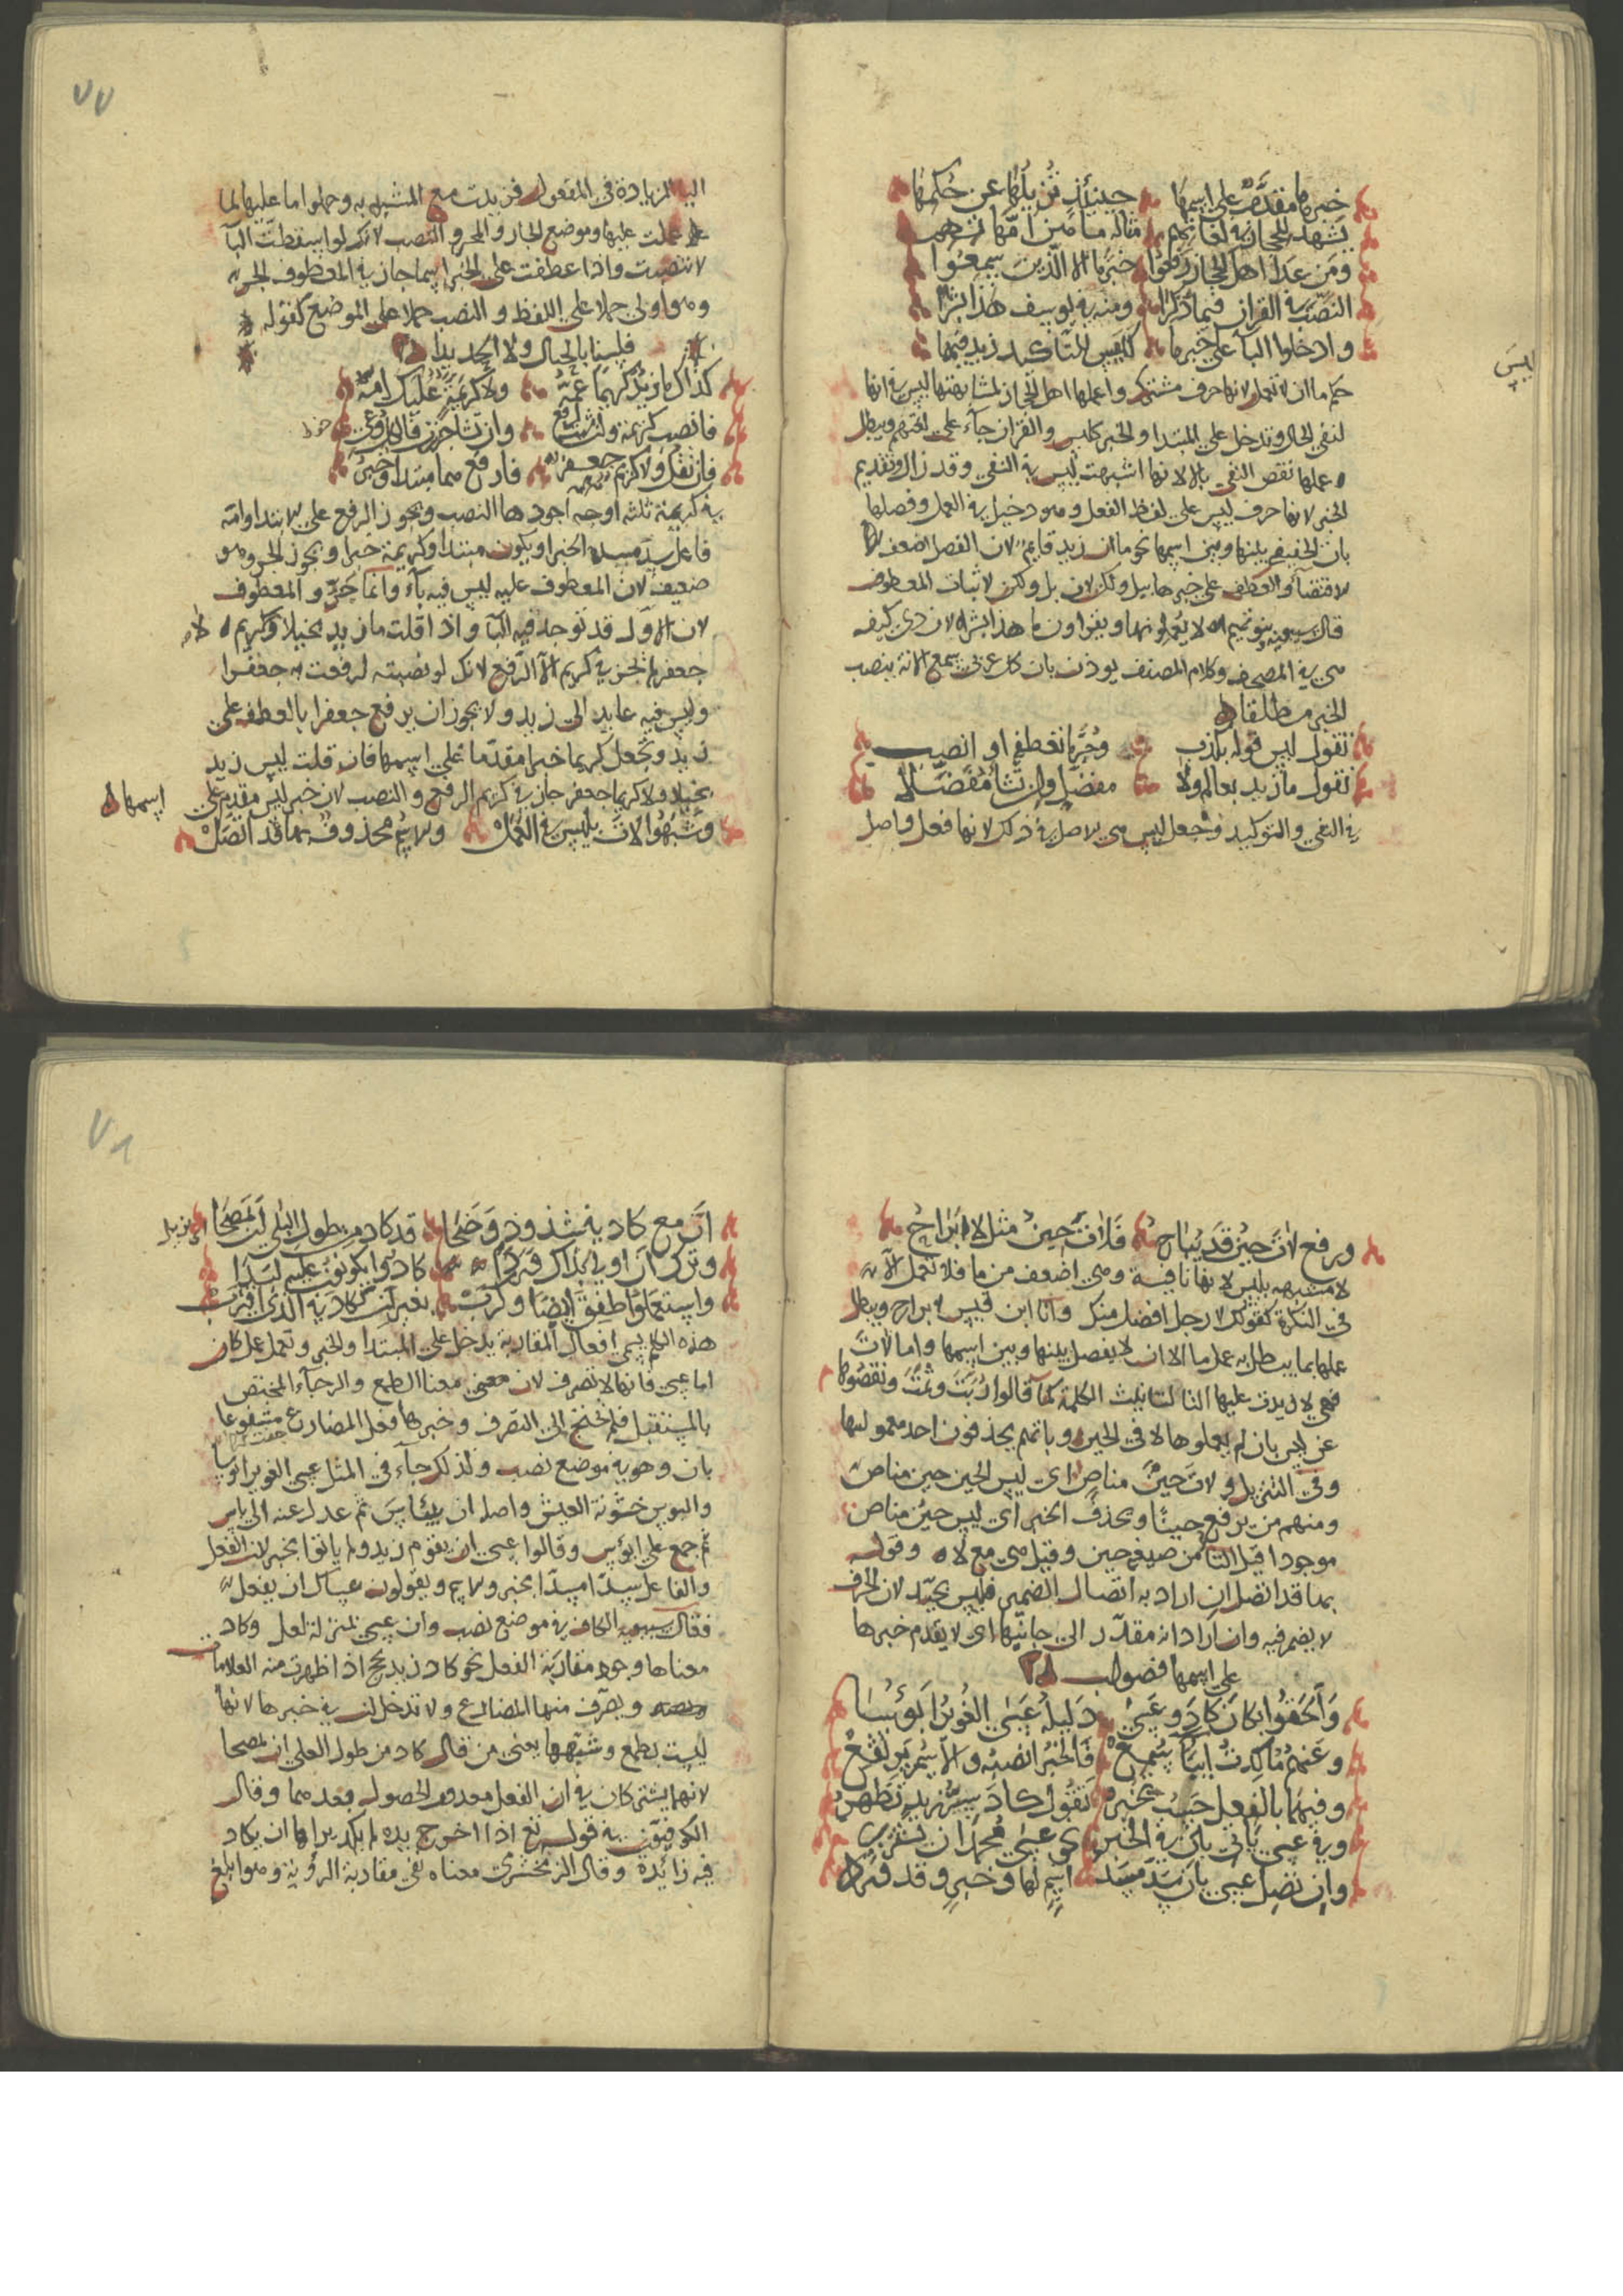 خبرها مقدم على اسمها حينئذ تزيلها عن حكمها
يشهد للحجازية لغاتهم مثاله ما هن امهاتهم
ومن عدا اهل الحجاز رفعوا خبرها الا الذين سمعوا
النصب في القران فيما ذكرا ومنه في يوسف هذا بشرا
وادخلوا البآ على خبرها كليس للتاكيد زيد فيها
حكم ما ان لا تعمل لانها حرف مشترك واعملها اهل الحجاز لمشابهتها ليس في انها
ليس
لنفي الحال وتدخل على المبتدا والخبر كليس والقران جآء على لغتهم ويبطل
عملها نقص النفي بالا لانها اشبهت ليس في النفي وقد زال وتقديم
الخبر لانها حرف ليس على لفظ الفعل وهو دخيل في العمل وفصلها
بان الخفيفة بينها وبين اسمها نحو ما ان زيد قايم لان الفصل اضعف لها
لاقتضآء والعطف على خبرها ببل ولكن لان بل ولكن لاثبات المعطوف
قال سيبويه بنو تميم لا يعملونها ويقراون ما هذا بشر الا من درى كيف
هي في المصحف وكلام المصنف يوذن بان كل عربي سمع الاية ينصب
الخبر مطلقا
تقول ليس قوله بكذب وجرها نعطف او انصب
تقول ما زيد بعالم ولا مفضل وان تشا مفضلا
في النفي والتوكيد وجعل ليس هي الاصل في ذلك لانها فعل واصل
٧٧
البا الزيادة في المفعول فزيدت مع المشبه به وحملوا ما عليها لما
عملت عليها وموضع الجار والمجرور النصب لانك لو اسقطت البآ
لانتصبت واذا عطفت على الخبر اسما جاز في المعطوف الجر
وهو اولى حملا على اللفظ والنصب حملا على الموضع كقوله
فلسنا بالجبال ولا الحديدا
كذاك ما زيد كريما عمه ولا كريمة عليك امه
فانصب كريمة ولشئت ارفع وان تشا جرز فالكل وعي
فان تقل ولا كريم جعفر فارفع هما مبتدا وخبر
في كريمة ثلثه اوجه اجودها النصب ويجوز الرفع على الابتدا وامه
فاعل سد مسد الخبر او يكون مبتدا وكريمة خبرا ويجوز الجر وهو
ضعيف لان المعطوف عليه ليس فيه بآء وانما جر والمعطوف
لان الاول قد توجد فيه البآ واذا قلت ما زيد بخيلا ولا كريم
جعفر لم يجز في كريم الا الرفع لانك لو نصبته لرفعت به جعفرا
وليس فيه عايد الى زيد ولا يجوز ان يرفع جعفرا بالعطف على
زيد وتجعل كريما خبرا مقدما على اسمها فان قلت ليس زيد
بخيلا ولا كريما جعفر جاز في كريم الرفع والنصب لان خبر ليس مقدم على
اسمها
وشبهوا لات بليس في العمل والاسم محذوف بما قد اتصل
ويرفع لات حين قد يباح فلات حين مثل لا براح
لا مشبهه بليس لانها نافية وهي اضعف من ما فلا تعمل الا
في النكرة كقولك لا رجل افضل منك وانا ابن قيس لا براح ويبطل
عملها بما يبطل به عمل ما الا ان لا يفصل بينها وبين اسمها واما لات
فهي لا زيدت عليها التا لتانيث الكلمة كما قالوا ربت وثمت ونقصوها
عن ليس بان لم يعملوها الا في الحين وبانهم يحذفون احد معموليها
وفي التنزيل ولات حين مناص اي ليس الحين حين مناص
ومنهم من يرفع حينا ويحذف الخبر اي ليس حين مناص
موجودا قيل التا من صيغة حين وقيل هي مع لا وقوله
بما قد اتصل ان اراد به اتصال الضمير فليس بجيد لان الحرف
لا يضمر فيه وان اراد انه مقدر الى جانبها اي لا يقدم خبرها
على اسمها فصواب
والحقوا بكان كاد وعسى دليله عسى الغوير ابؤسا
وعنهم ما كدت ايبا سمع فالخبر انصبه والاسم يرتفع
وفيهما بالفعل حسب يخبر تقول كاد سر زيد تظهر
وفي عسى ياتي بان في الخبر نحو عسى محرز ان
وان تصل عسى بان سد مسد اسم لها وخبر وقد ورد
٧٨
ان مع كاد في شذوذ وضحا قد كاد من طول البلى ان يمصحا
وترك ان اولى بذاك فردا كادوا يكونون عليه لبدا
واستعملوا طفق ايضا وكرب بغير ان ككاد في الذي اقترب
هذه الكلم يسمى افعال المقاربة يدخل على المبتدا والخبر وتعمل عمل كان
اما عسى فانها لا تصرف لان معنى معناها الطمع والرجآء المختص
بالمستقبل فلم تحتج الى التصرف وخبرها فعل المضارع مشفوعا
بان وهو في موضع نصب ولذلك جآء في المثل عسى الغوير ابؤسا
والبوس خشونة العيش واصله ان يبأس ثم عدل عنه الى باس
ثم جمع على ابوس وقالوا عسى ان يقوم زيد ولم ياتوا بخبر لان الفعل
والفاعل سدا مسدا الخبر والاسم ويقولون عساك ان يفعل
فقال سيبويه الكاف في موضع نصب وان عسى بمنزلة لعل وكاد
معناها وجود مقاربة الفعل نحو كاد زيد يحج اذا ظهرت منه العلامات
ويصرف منها المضارع ولا تدخل ان في خبرها لانها
ليست بطمع وشبهها بعسى من قال كاد من طول البلى ان يمصحا
لانهما يشتركان في ان الفعل معدوم الحصول بعدهما وقال
الكوفيون في قوله تع اذا اخرج يده لم يكد يراها ان يكاد
فيه زايدة وقال الزمخشري معناه نفي مقاربة الرؤية وهو ابلغ